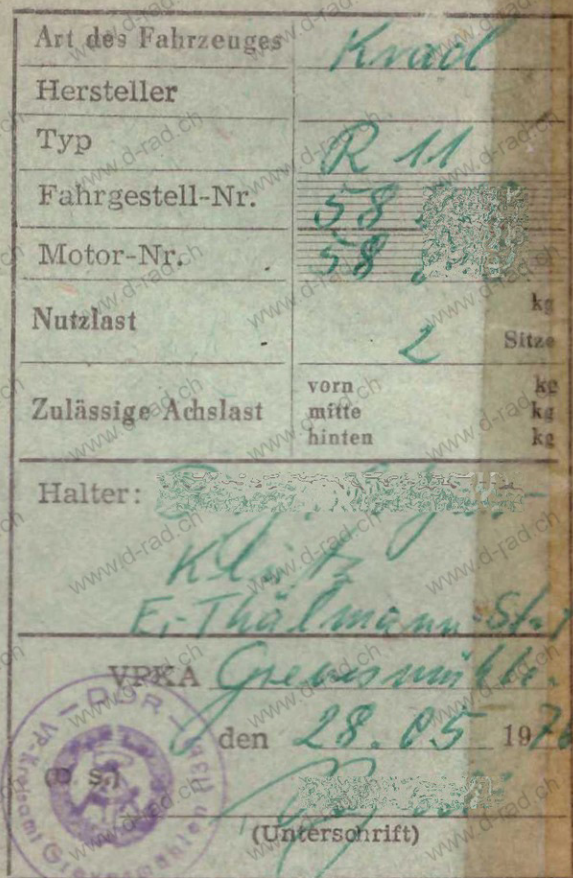 Art des Fahrzeuges Krad
Hersteller
Typ R 11
Fahrgestell-Nr. 58
Motor-Nr. 58
kg
Nutzlast 2 Sitze
vorn kg
Zulässige Achslast mitte kg
hinten kg
Halter:
Klütz
E.-Thälmann-Str.
VPKA Grevesmühlen
den 28.05 1976
(Unterschrift)
- DDR -
VP-Kreisamt Grevesmühlen
www.d-rad.ch